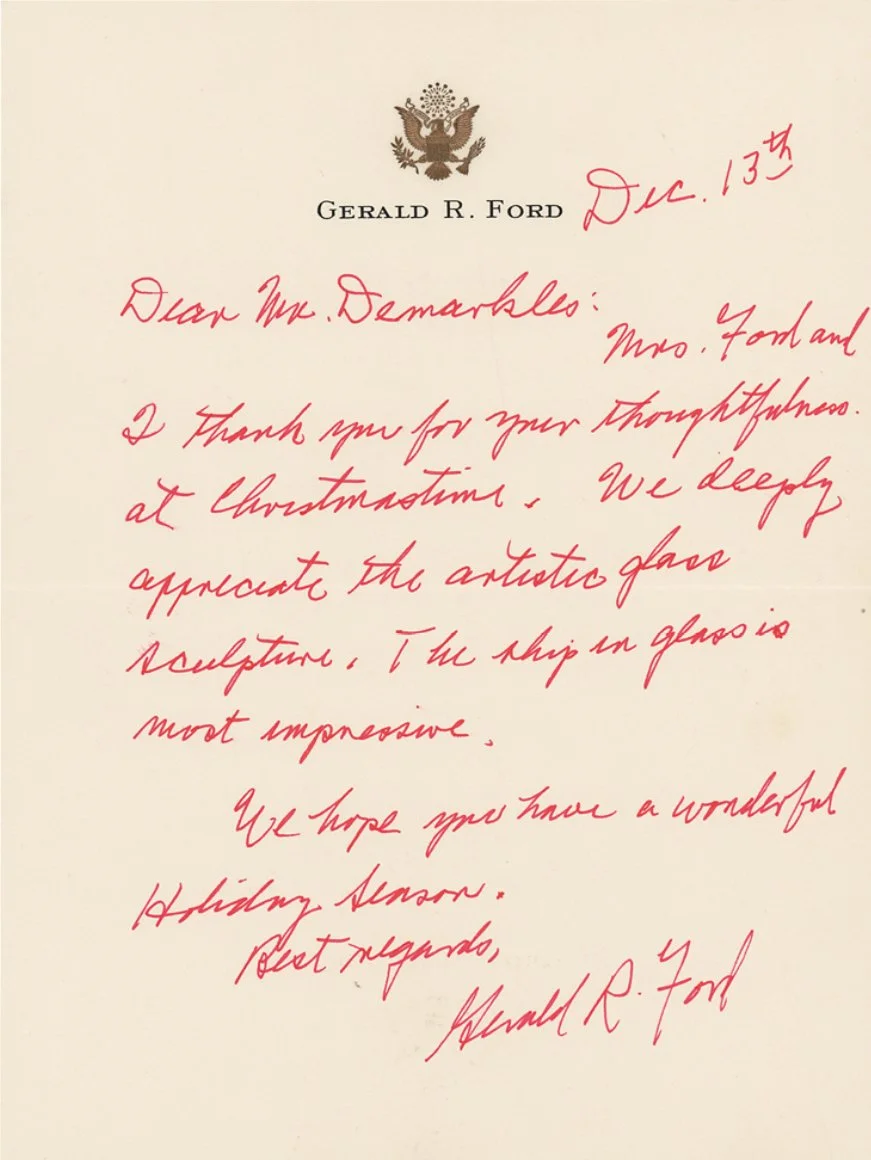 GERALD R. FORD
Dec. 13th
Dear Mr. Demarkles:
Mrs. Ford and
I thank you for your thoughtfulness.
at Christmastime. We deeply
appreciate the artistic glass
sculpture. The ship in glass is
most impressive.
We hope you have a wonderful
Holiday Season.
Best regards,
Gerald R. Ford